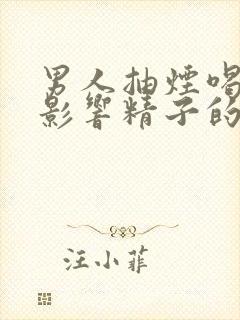 男人抽煙喝
影響精子的
汪小菲